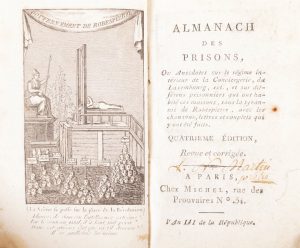 GOUVERNEMENT DE ROBESPIERRE
ALMANACH
DES
PRISONS,
Ou Anecdotes sur le régime in-
térieur de la Conciergerie, du
Luxembourg, ect., et sur dif-
férens prisonniers qui ont ha-
bité ces maisons, sous la tyrannie
de Robespierre, avec les
chansons, lettres et couplets qui
y ont été faits.
QUATRIEME ÉDITION,
Revue et corrigée.
A PARIS,
Chez MICHEL, rue des
Prouvaires N°. 54.
L'An III de la République.